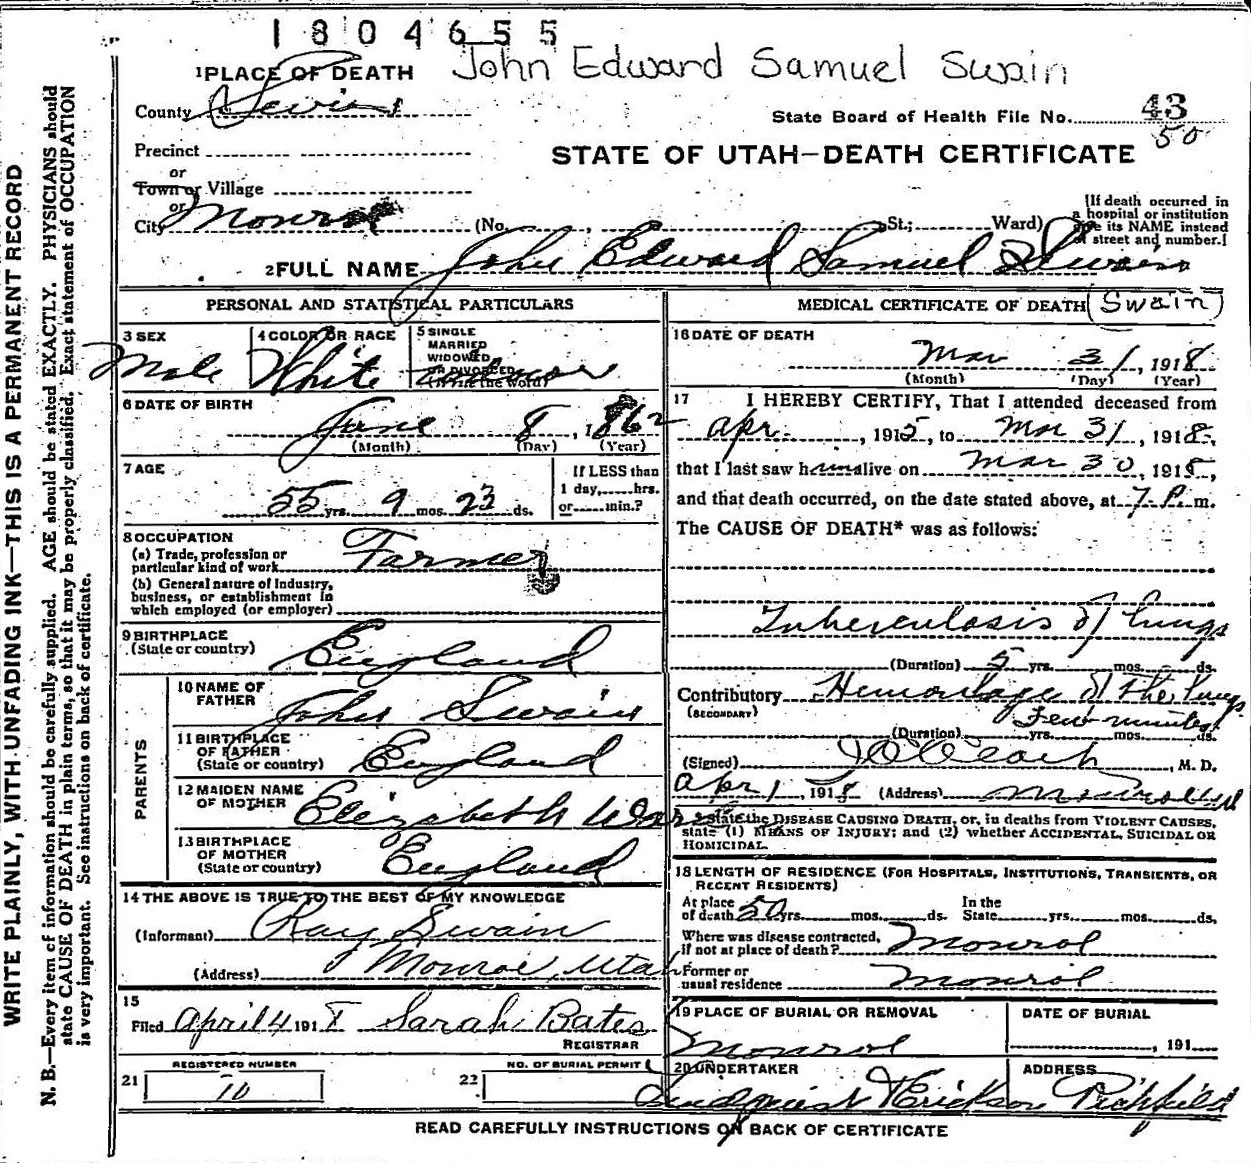 1804655
John Edward Samuel Swain
1 PLACE OF DEATH
County Sevier
State Board of Health File No. 43
50
Precinct
STATE OF UTAH—DEATH CERTIFICATE
or
Town or Village
or
City Monroe (No. , St.; Ward)
[If death occurred in
a hospital or institution
give its NAME instead
of street and number.]
2 FULL NAME John Edward Samuel Swain
(Swain)
PERSONAL AND STATISTICAL PARTICULARS
3 SEX
Male
4 COLOR OR RACE
White
5 SINGLE
MARRIED
WIDOWED
OR DIVORCED
(Write the word)
6 DATE OF BIRTH
June 8, 1862
(Month) (Day) (Year)
7 AGE
55 yrs. 9 mos. 23 ds.
If LESS than
1 day, hrs.
or min.?
8 OCCUPATION
(a) Trade, profession or
particular kind of work Farmer
(b) General nature of Industry,
business, or establishment in
which employed (or employer)
9 BIRTHPLACE
(State or country) England
PARENTS
10 NAME OF
FATHER John Swain
11 BIRTHPLACE
OF FATHER
(State or country) England
12 MAIDEN NAME
OF MOTHER Elizabeth
13 BIRTHPLACE
OF MOTHER
(State or country) England
14 THE ABOVE IS TRUE TO THE BEST OF MY KNOWLEDGE
(Informant) Ray Swain
(Address) Monroe, Utah
15
Filed April 4 1918 Sarah Bates
REGISTRAR
REGISTERED NUMBER
21 10
NO. OF BURIAL PERMIT
22
MEDICAL CERTIFICATE OF DEATH
16 DATE OF DEATH
Mar 31, 1918
(Month) (Day) (Year)
17 I HEREBY CERTIFY, That I attended deceased from
Apr. , 1915, to Mar 31, 1918,
that I last saw him alive on Mar 30, 1918,
and that death occurred, on the date stated above, at 7 P. m.
The CAUSE OF DEATH* was as follows:
Tuberculosis of lungs
(Duration) 5 yrs. mos. ds.
Contributory Hemorrhage of the lungs
(SECONDARY)
few minutes
(Duration) yrs. mos. ds.
(Signed) , M. D.
Apr 1, 1918 (Address) Monroe Ut
* State the DISEASE CAUSING DEATH, or, in deaths from VIOLENT CAUSES,
state (1) MEANS OF INJURY; and (2) whether ACCIDENTAL, SUICIDAL OR
HOMICIDAL.
18 LENGTH OF RESIDENCE (FOR HOSPITALS, INSTITUTIONS, TRANSIENTS, OR
RECENT RESIDENTS)
At place In the
of death 50 yrs. mos. ds. State yrs. mos. ds.
Where was disease contracted,
if not at place of death? Monroe
Former or
usual residence Monroe
19 PLACE OF BURIAL OR REMOVAL
Monroe
DATE OF BURIAL
, 191
20 UNDERTAKER
Erickson
ADDRESS
Richfield
READ CAREFULLY INSTRUCTIONS ON BACK OF CERTIFICATE
WRITE PLAINLY, WITH UNFADING INK—THIS IS A PERMANENT RECORD
N. B.—Every item of information should be carefully supplied. AGE should be stated EXACTLY. PHYSICIANS should
state CAUSE OF DEATH in plain terms, so that it may be properly classified. Exact statement of OCCUPATION
is very important. See instructions on back of certificate.